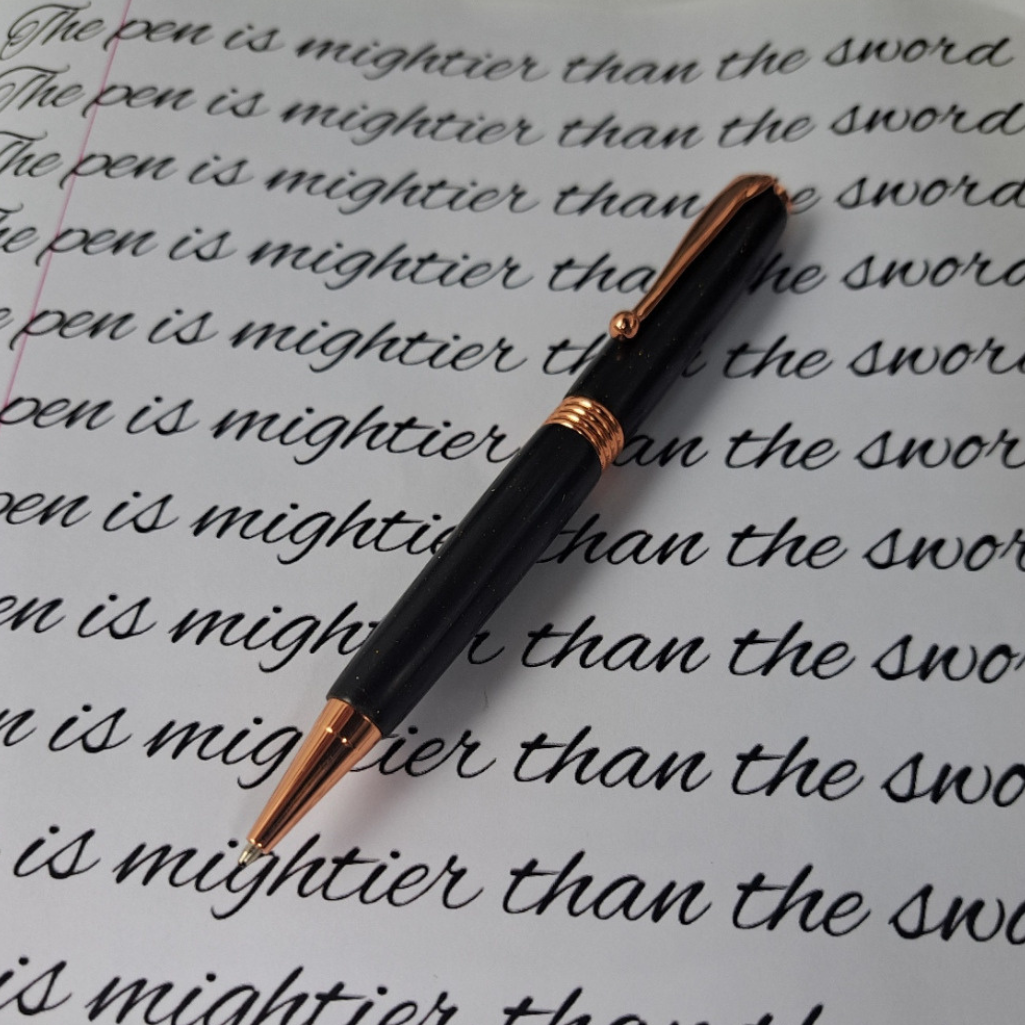 The pen is mightier than the sword
The pen is mightier than the sword
The pen is mightier than e sword
he pen is mightier tha he sword
e pen is mightier th the swor
pen is mightier an the swor
pen is mightie than the swor
en is migh r than the swo
n is mig tier than the swo
is mightier than the swo
is mightier than th